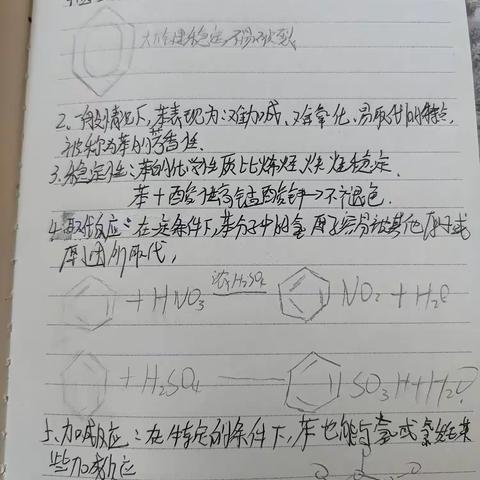 大π键稳定,不易
2、一般情况下,苯表现为:难加成、难氧化、易取代的特点,
被称为苯的芳香性.
3、稳定性:苯的化学性质比烯烃炔烃稳定.
苯+酸性高锰酸钾→不褪色.
4、取代反应:在一定条件下,苯分子中的氢原子容易被其他原子或
原子团所取代,
+HNO3 浓H2SO4 NO2+H2O
+H2SO4 SO3H+H2O
5、加成反应:在特定的条件下,苯也能与氢或氯发生某
些加成反应